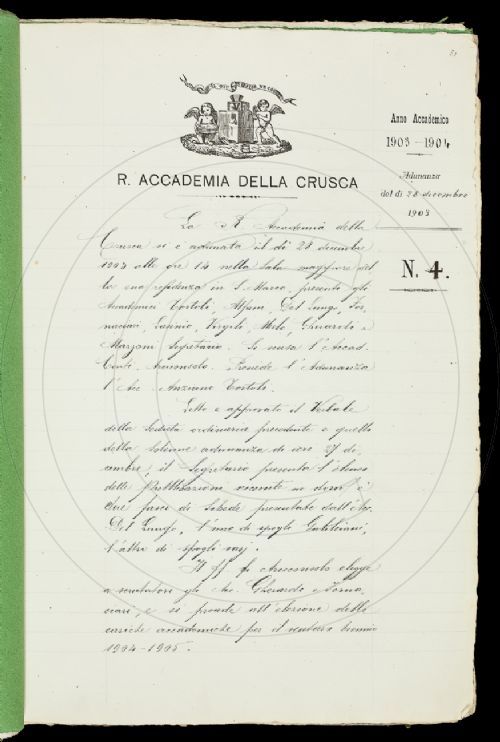 Anno Accademico
1903-1904
Adunanza
del di 28 dicembre
1903
N. 4.
R. ACCADEMIA DELLA CRUSCA
La R. Accademia della
Crusca si è adunata il dì 28 dicembre
1903 alle ore 14 nella Sala maggiore del
la sua residenza in S. Marco, presenti gli
Accademici Tortoli, Alfani, Del Lungo, For
naciari, Virgili, Ghirardo e
Mazzoni Segretario. Si scusa l'Accad.
Conti, Arciconsolo. Presiede l'Adunanza
l'Acc. Anziano Tortoli.
Letto e approvato il Verbale
della Seduta ordinaria precedente e quello
della Solenne adunanza di ieri 27 di
cembre, il Segretario presenta l'elenco
delle Pubblicazioni ricevute in dono, e
due pacchi di Schede presentate dall'Acc.
Del Lungo, l'uno di spogli Galileiani,
l'altro di spogli varj.
Il ff di Arciconsolo elegge
a scrutatori gli Acc. Gherardo e Forna
ciari, e si procede all'elezione delle
cariche accademiche per il venturo biennio
1904-1905.